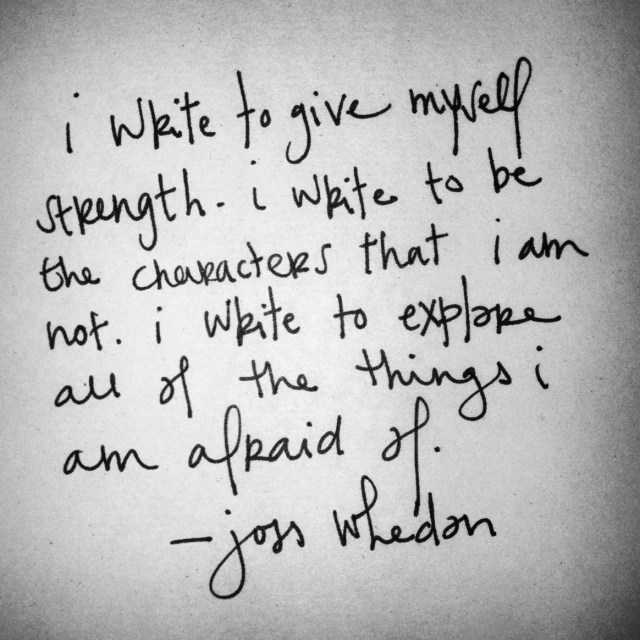 i write to give myself
strength. i write to be
the characters that i am
not. i write to explore
all of the things i
am afraid of.
- joss whedon